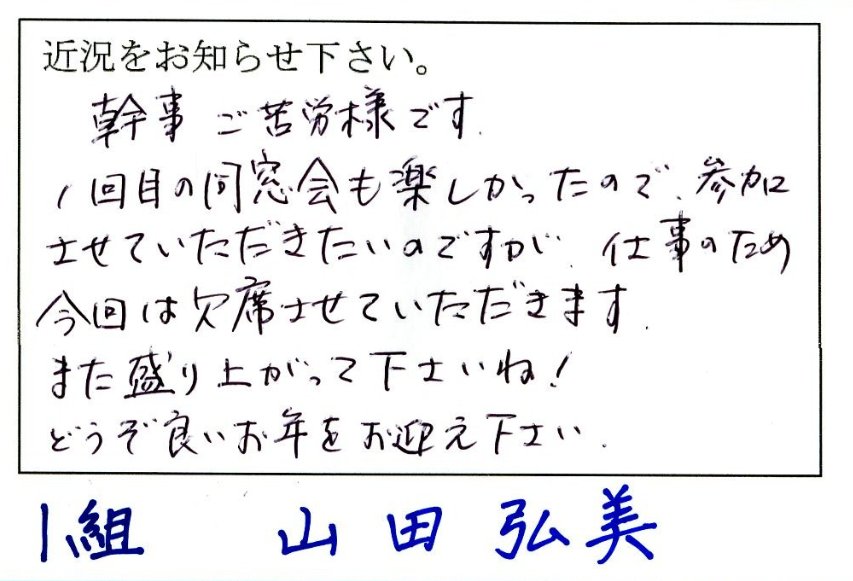 近況をお知らせ下さい。
幹事ご苦労様です.
1回目の同窓会も楽しかったので、参加
させていただきたいのですが、仕事のため
今回は欠席させていただきます.
また盛り上がって下さいね!
どうぞ良いお年をお迎え下さい.
1組 山田弘美